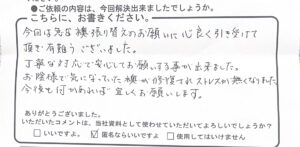 ●ご依頼の内容は、今回解決出来ましたでしょうか。
こちらに、お書きください。
今回は急な襖張り替えのお願いに心良く引き受けて
頂き有難うございました。
丁寧な対応で安心してお願いする事が出来ました。
お陰様で気になっていた襖が修復されストレスが無くなりました
今後も何かあれば宜しくお願いします。
ありがとうございました。
いただいたコメントは、当社資料として使わせていただいてよろしいでしょうか?
□いいですよ。 ☑匿名ならいいですよ □使用してはいけません